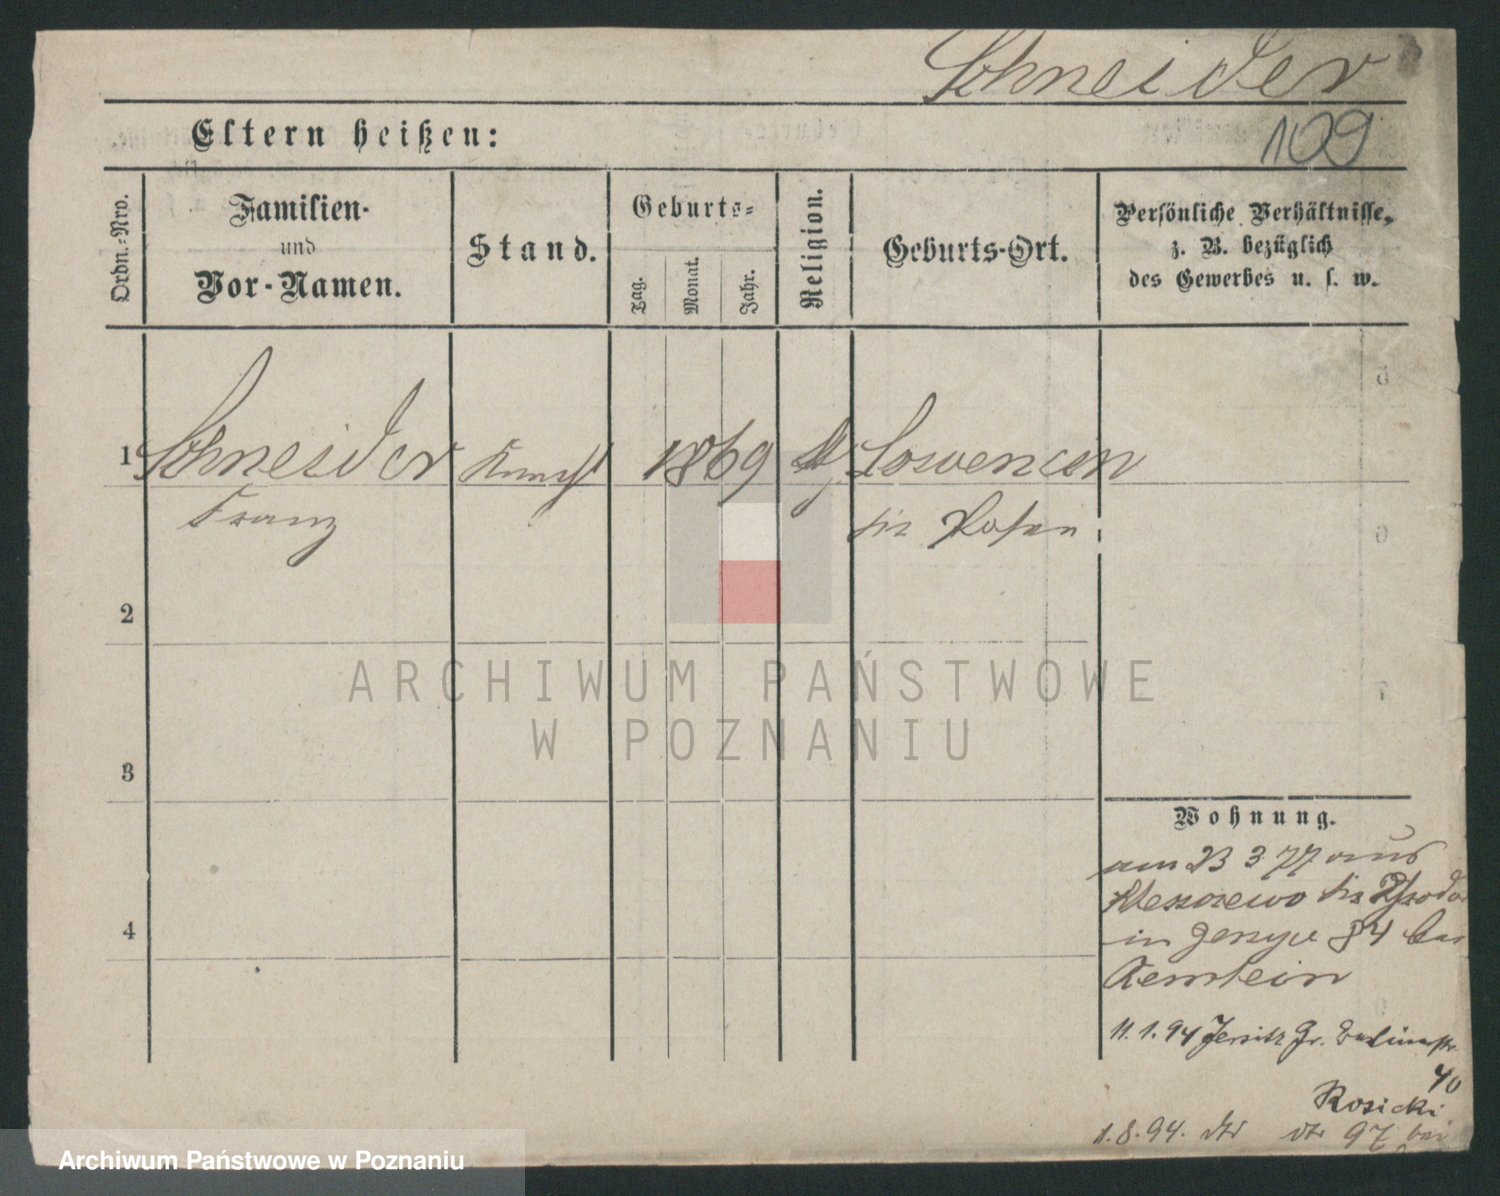 Schneider
109
Eltern heißen:
Ordn.-Nro.
Familien-
und
Vor-Namen.
Stand.
Geburts-
Tag.
Monat.
Jahr.
Religion.
Geburts-Ort.
Persönliche Verhältnisse,
z. B. bezüglich
des Gewerbes u. s. w.
1 Schneider 1869
Franz Posen
2
3
4
ARCHIWUM PAŃSTWOWE
W POZNANIU
Wohnung.
am 23 3 77 aus
in 84 bei
11.1.94 Jersitz Gr. Berlinerstr.
40
Rosicki
1.8.94. 97 bei
Archiwum Państwowe w Poznaniu